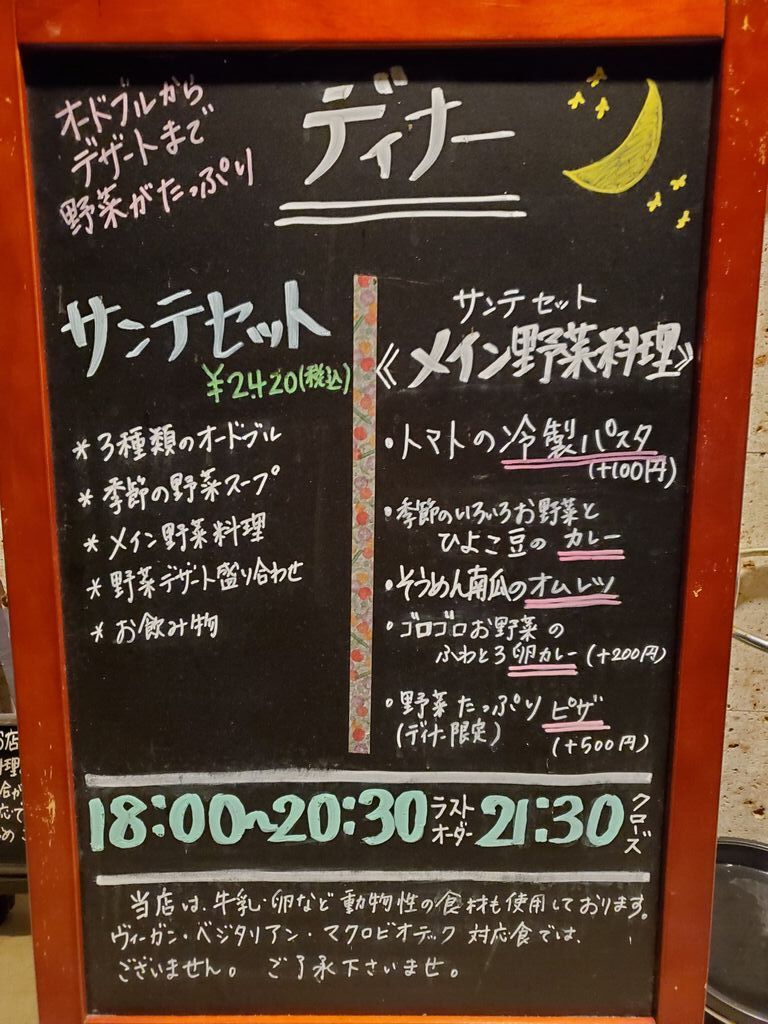 オードブルから
デザートまで
野菜がたっぷり
ディナー
サンテセット
¥2420(税込)
*3種類のオードブル
*季節の野菜スープ
*メイン野菜料理
*野菜デザート盛り合わせ
*お飲み物
サンテセット
《メイン野菜料理》
・トマトの冷製パスタ
(+100円)
・季節のいろいろお野菜と
ひよこ豆のカレー
・そうめん南瓜のオムレツ
・ゴロゴロお野菜の
ふわとろ卵カレー(+200円)
・野菜たっぷりピザ
(ディナー限定)
(+500円)
18:00~20:30ラストオーダー 21:30クローズ
当店は、牛乳・卵など動物性の食材も使用しております。
ヴィーガン・ベジタリアン・マクロビオテック対応食では、
ございません。ご了承下さいませ。